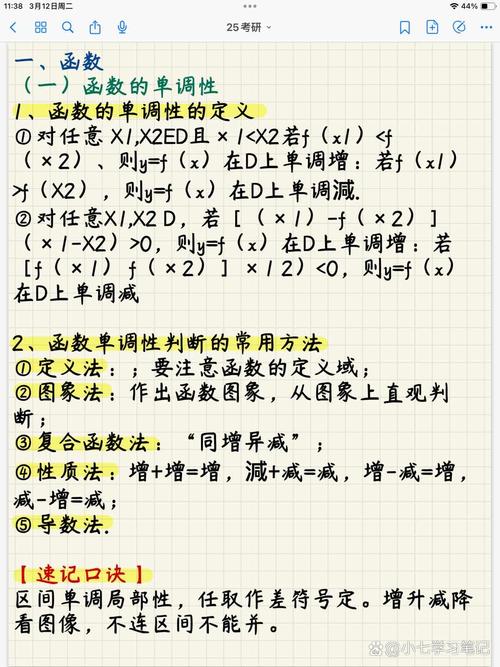 11:38 3月12日周二
44%
25考研
一、函数
（一）函数的单调性
1、函数的单调性的定义
①对任意 X1,X2ED且×1<X2若f（x1）<f
（×2）、则y=f（x）在D上单调增：若f（x1）
>f（X2），则y=f（x）在D上单调減.
②对任意X1,X2 D，若［（×1）-f（×2）］
（×1-X2）>0，则y=f（x）在D上单调增：若
［f（×1） f（×2）］ ×1 2）<0，则y=f（x）
在D上单调减
2、函数单调性判断的常用方法
①定义法：；要注意函数的定义域；
②图象法：作出函数图象，从图象上直观判
断；
③复合函数法：“同增异减”；
④性质法：增+增=增，減+减=减，增-减=增，
减-增=减；
⑤导数法.
【速记口诀】
区间单调局部性，任取作差符号定。增升减降
看图像，不连区间不能并。
小七学习笔记